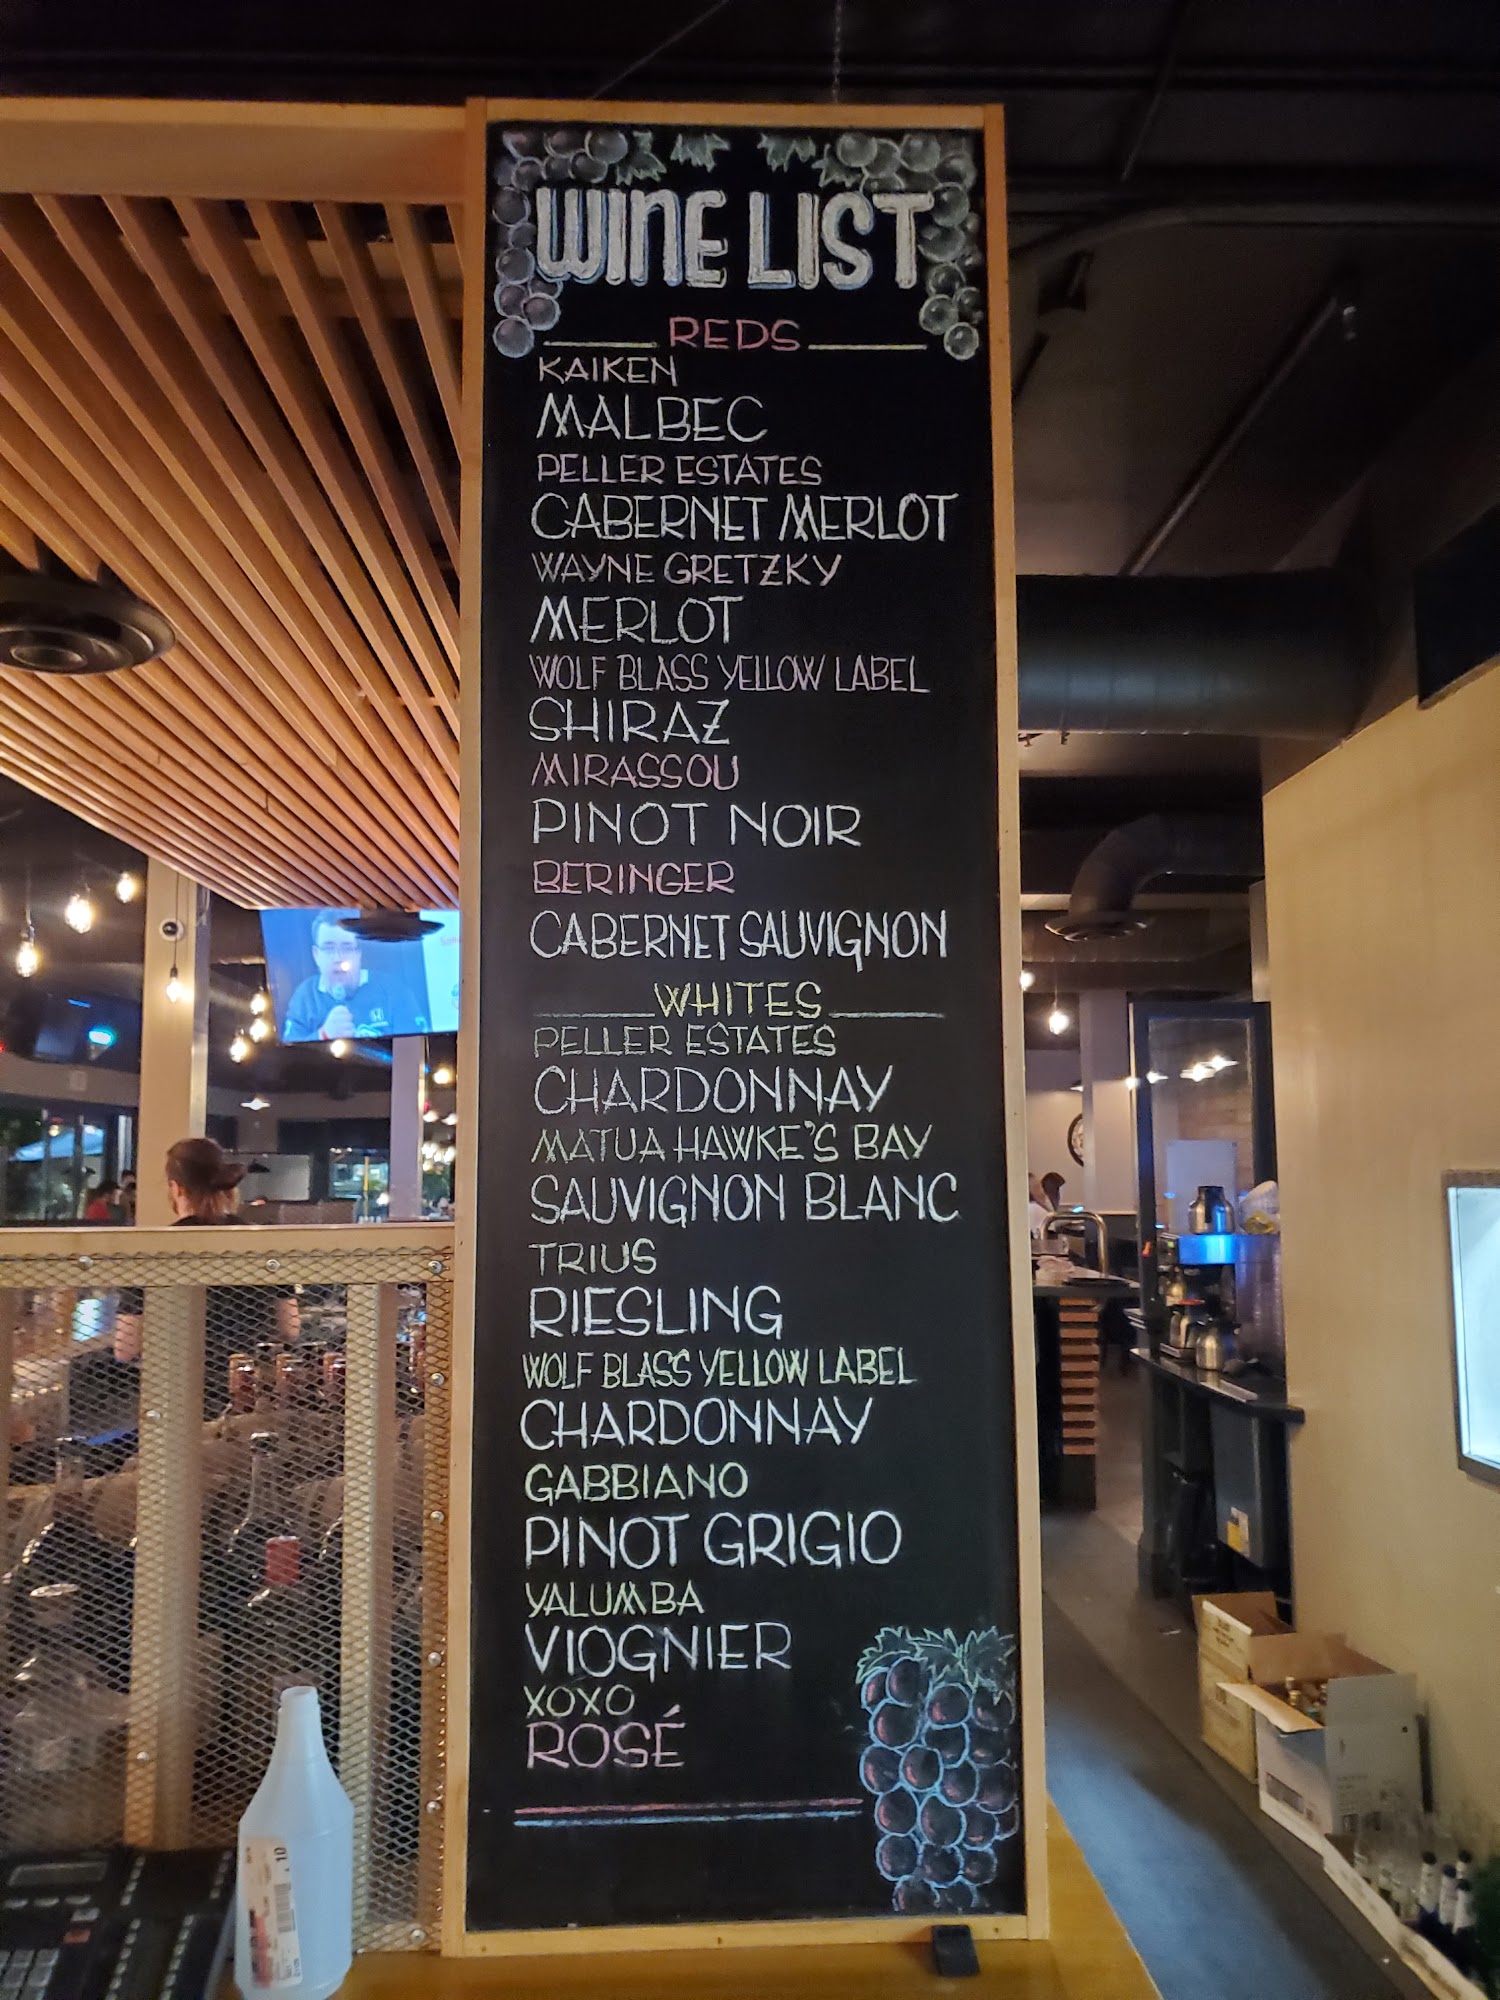 WINE LIST
REDS
KAIKEN
MALBEC
PELLER ESTATES
CABERNET MERLOT
WAYNE GRETZKY
MERLOT
WOLF BLASS YELLOW LABEL
SHIRAZ
MIRASSOU
PINOT NOIR
BERINGER
CABERNET SAUVIGNON
WHITES
PELLER ESTATES
CHARDONNAY
MATUA HAWKE'S BAY
SAUVIGNON BLANC
TRIUS
RIESLING
WOLF BLASS YELLOW LABEL
CHARDONNAY
GABBIANO
PINOT GRIGIO
YALUMBA
VIOGNIER
XOXO
ROSÉ